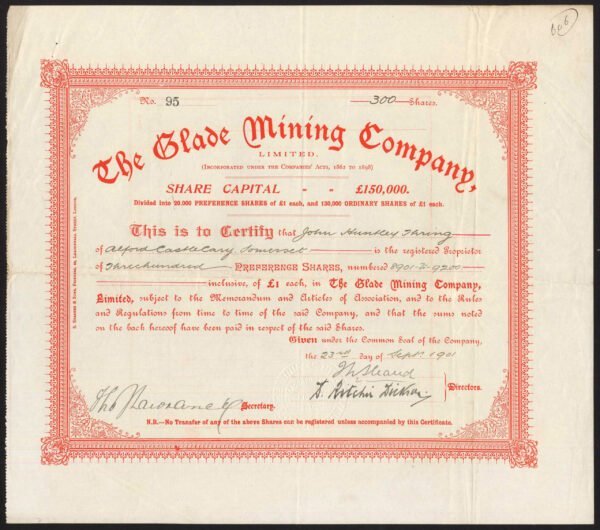 No. 95 300 Shares.
The Glade Mining Company,
LIMITED.
(INCORPORATED UNDER THE COMPANIES' ACTS, 1862 TO 1898)
SHARE CAPITAL - - £150,000.
Divided into 20,000 PREFERENCE SHARES of £1 each, and 130,000 ORDINARY SHARES of £1 each.
This is to Certify that John Huntley Thring
of Alford Castle Cary, Somerset is the registered Proprietor
of Three hundred PREFERENCE SHARES, numbered 8901 to 9200
inclusive, of £1 each, in The Glade Mining Company,
Limited, subject to the Memorandum and Articles of Association, and to the Rules
and Regulations from time to time of the said Company, and that the sums noted
on the back hereof have been paid in respect of the said Shares.
Given under the Common Seal of the Company,
the 23rd day of Sept. 1901
D. Ritchie Dickson
Directors.
Secretary.
N.B.—No Transfer of any of the above Shares can be registered unless accompanied by this Certificate.